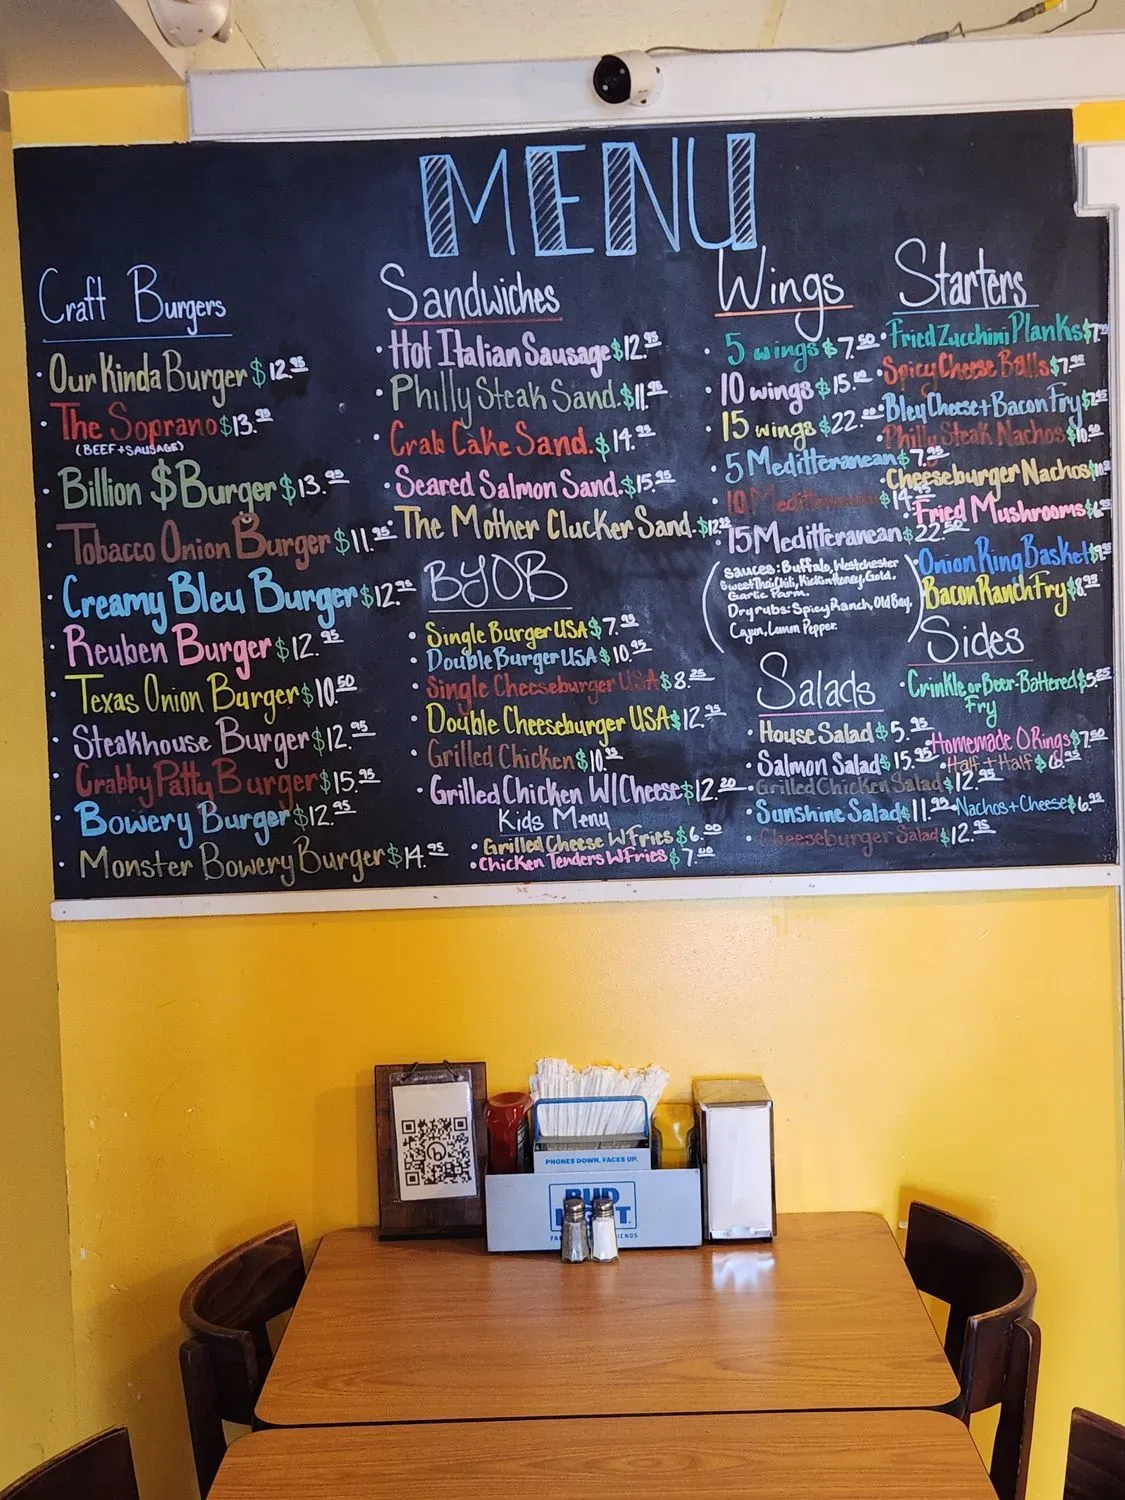 MENU
Craft Burgers
Our Kinda Burger $12.95
The Soprano $13.95
(BEEF + SAUSAGE)
Billion $ Burger $13.95
Tobacco Onion Burger $11.95
Creamy Bleu Burger $12.95
Reuben Burger $12.95
Texas Onion Burger $10.50
Steakhouse Burger $12.95
Crabby Patty Burger $15.95
Bowery Burger $12.95
Monster Bowery Burger $14.95
Sandwiches
Hot Italian Sausage $12.95
Philly Steak Sand. $11.95
Crab Cake Sand. $14.95
Seared Salmon Sand. $15.95
The Mother Clucker Sand. $12.95
BYOB
Single Burger USA $7.95
Double Burger USA $10.95
Single Cheeseburger USA $8.25
Double Cheeseburger USA $12.95
Grilled Chicken $10.95
Grilled Chicken W/Cheese $12.20
Kids Menu
Grilled Cheese W Fries $6.00
Chicken Tenders W Fries $7.00
Wings
5 wings $7.50
10 wings $15.00
15 wings $22.00
5 Meditteranean $7.95
10 Meditteranean $14.95
15 Meditteranean $22.50
Sauces: Buffalo, Westchester
Sweet Thai Chili, Kickin Honey, Gold,
Garlic Parm.
Dry rubs: Spicy Ranch, Old Bay,
Cajun, Lemon Pepper.
Salads
House Salad $5.95
Salmon Salad $15.95
Grilled Chicken Salad $12.95
Sunshine Salad $11.95
Cheeseburger Salad $12.95
Starters
Fried Zucchini Planks $7.95
Spicy Cheese Balls $7.95
Bley Cheese + Bacon Fry
Philly Steak Nachos $10.50
Cheeseburger Nachos
Fried Mushrooms
Onion Ring Basket
Bacon Ranch Fry $8.95
Sides
Crinkle or Beer-Battered $5.25
Fry
Homemade O Rings $7.50
Half + Half $6.95
Nachos + Cheese $6.95
PHONES DOWN. FACES UP.
BUD